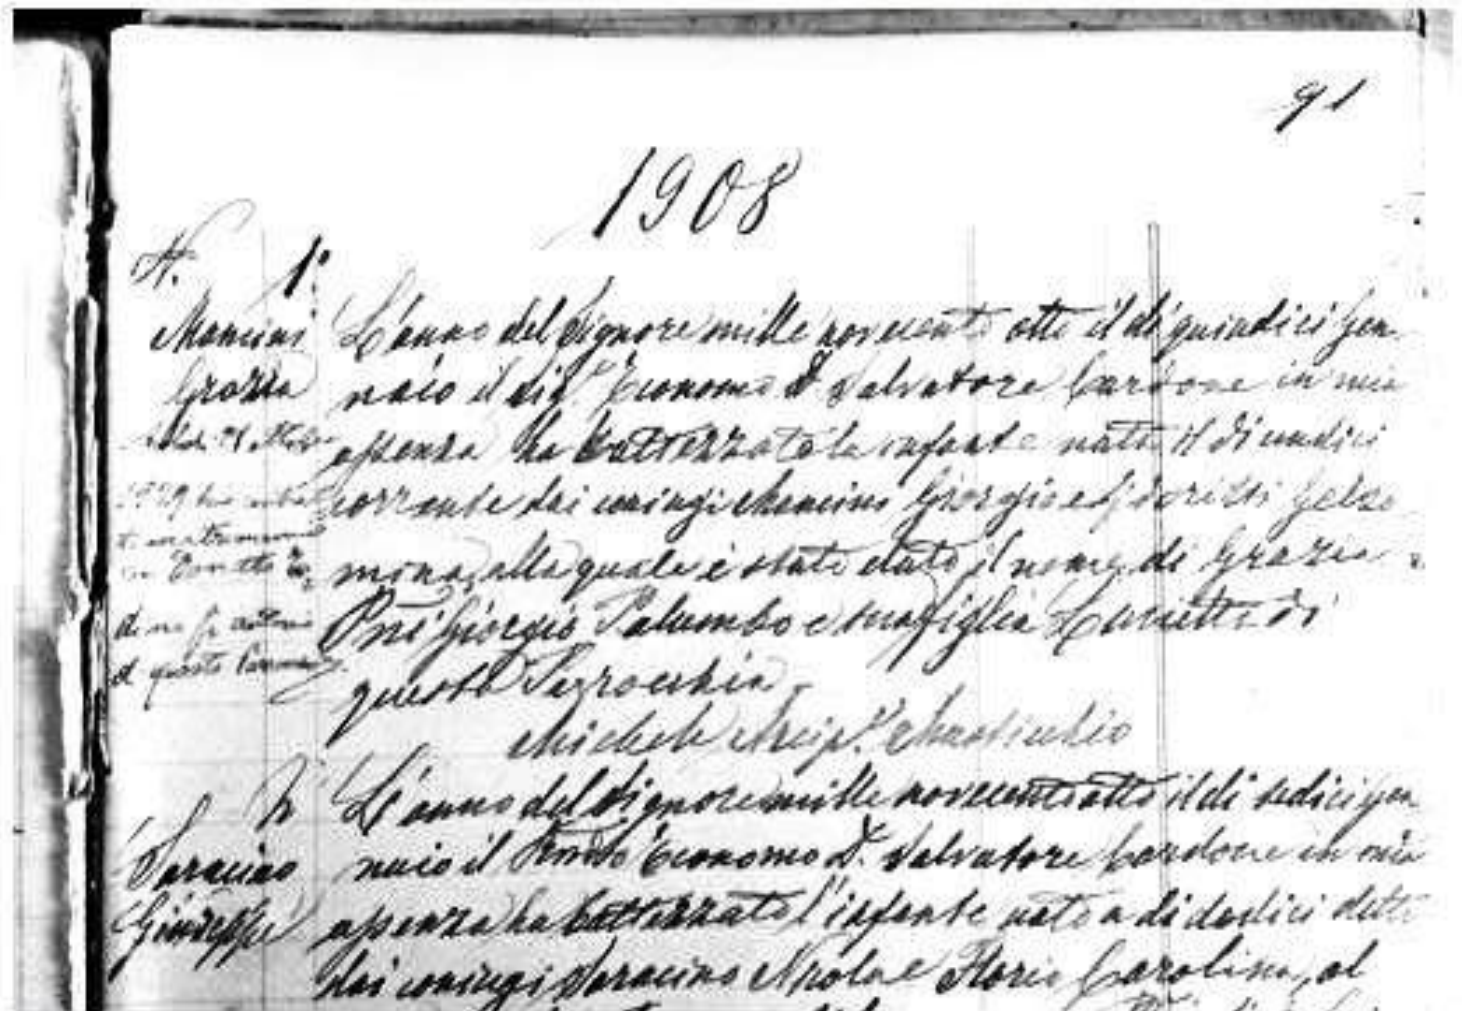 91
1908
N. 1°
Mancini
Grazia
1929 ha
matrimonio
di questa
L'anno del Signore mille novecento otto il dì quindici Gen-
naio il Economo D. Salvatore Cardone in mia
assenza ha battezzato la infante nata il dì undici
corrente dai coniugi Mancini Giorgio e Gelso
mina, alla quale è stato dato il nome di Grazia
Pni Giorgio Palumbo e sua figlia di
questa Parrocchia.
Michele Arcip.
2°
Saracino
Giuseppe
L'anno del Signore mille novecento otto il dì sedici Gen
naio il Economo D. Salvatore Cardone in mia
assenza ha battezzato l'infante nato a dì dodici detto
dai coniugi Saracino Nicola e Florio Carolina, al